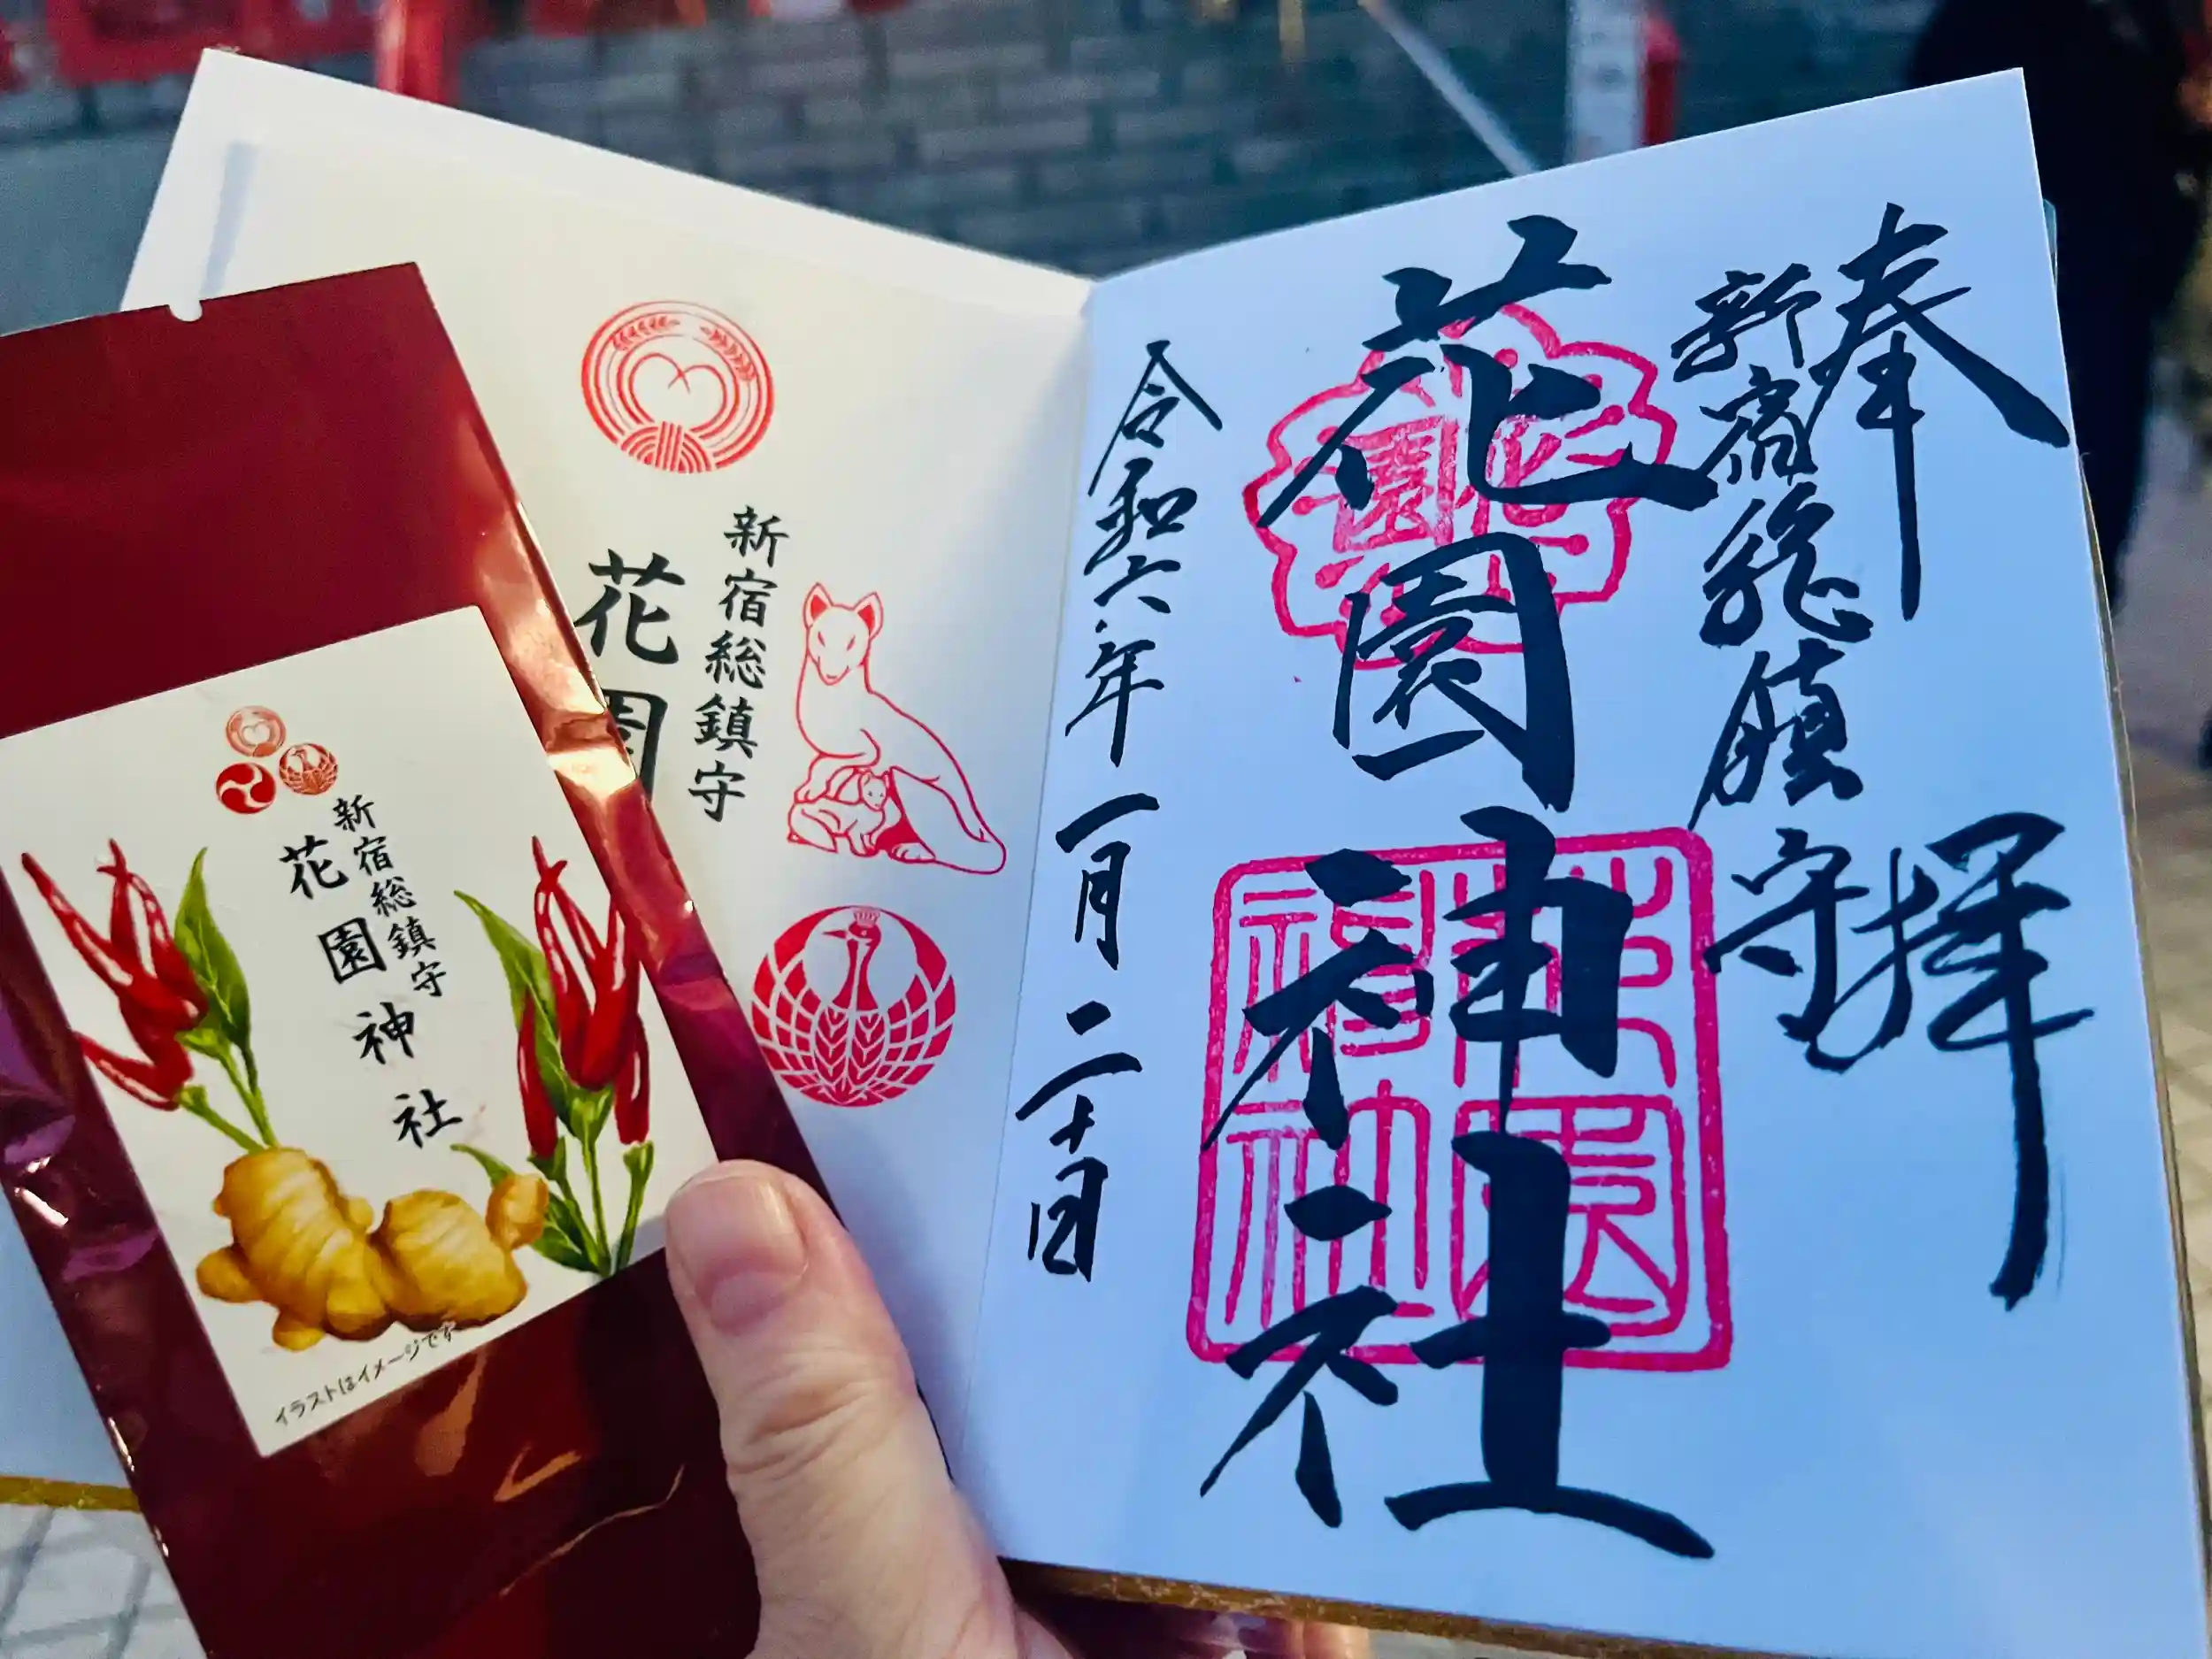 奉拝
新宿総鎮守
花園神社
令和六年一月二十日
花園
花園神社
新宿総鎮守
花園
新宿総鎮守
花園神社
イラストはイメージです